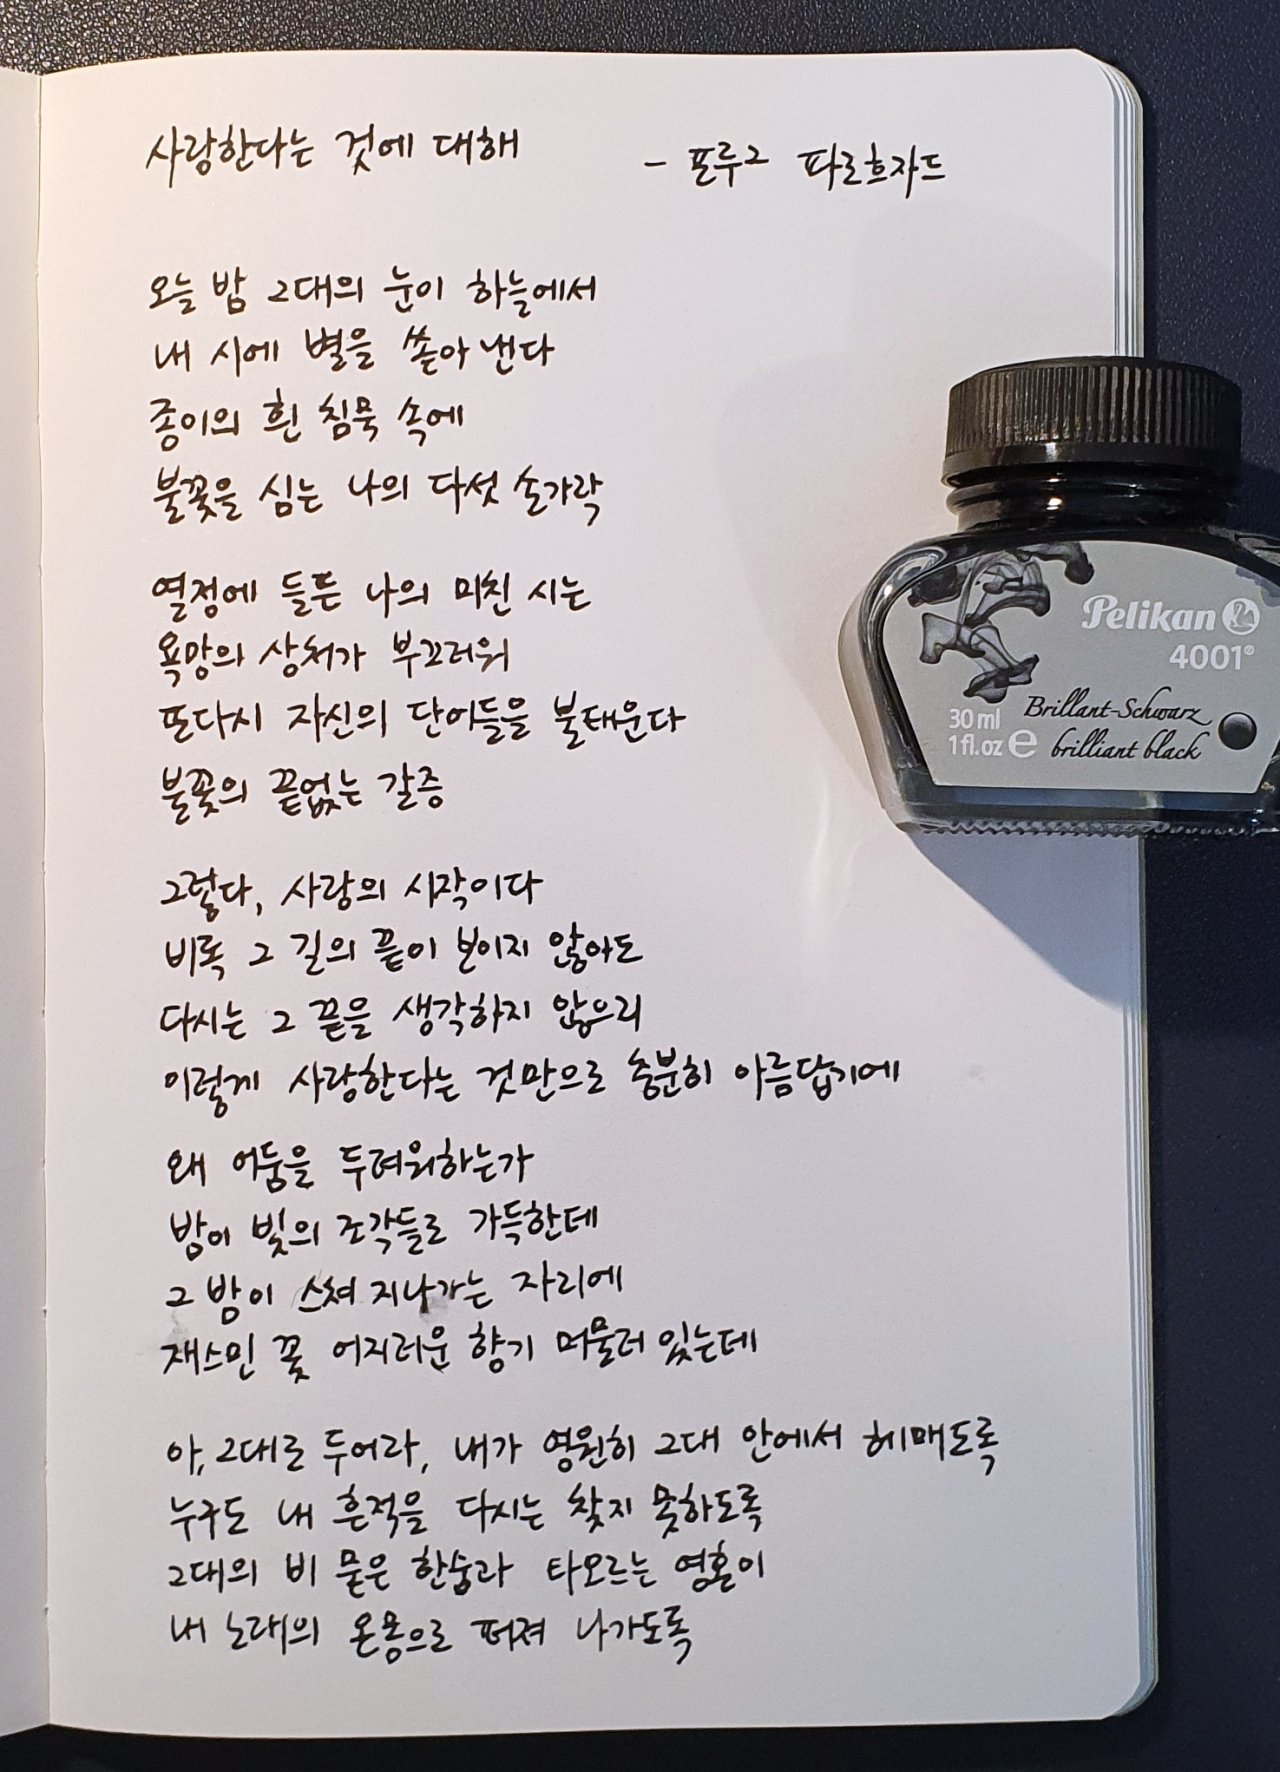 사랑한다는 것에 대해
- 포루그 파로흐자드
오늘 밤 그대의 눈이 하늘에서
내 시에 별을 쏟아 낸다
종이의 흰 침묵 속에
불꽃을 심는 나의 다섯 손가락
열정에 들뜬 나의 미친 시는
욕망의 상처가 부끄러워
또다시 자신의 단어들을 불태운다
불꽃의 끝없는 갈증
그렇다, 사랑의 시작이다
비록 그 길의 끝이 보이지 않아도
다시는 그 끝을 생각하지 않으리
이렇게 사랑한다는 것만으로 충분히 아름답기에
왜 어둠을 두려워하는가
밤이 빛의 조각들로 가득한데
그 밤이 스쳐 지나가는 자리에
재스민 꽃 어지러운 향기 머물러 있는데
아, 그대로 두어라, 내가 영원히 그대 안에서 헤매도록
누구도 내 흔적을 다시는 찾지 못하도록
그대의 비 묻은 한숨과 타오르는 영혼이
내 노래의 온몸으로 퍼져 나가도록
Pelikan
4001®
30 ml
1 fl. oz ℮
Brillant-Schwarz
brilliant black